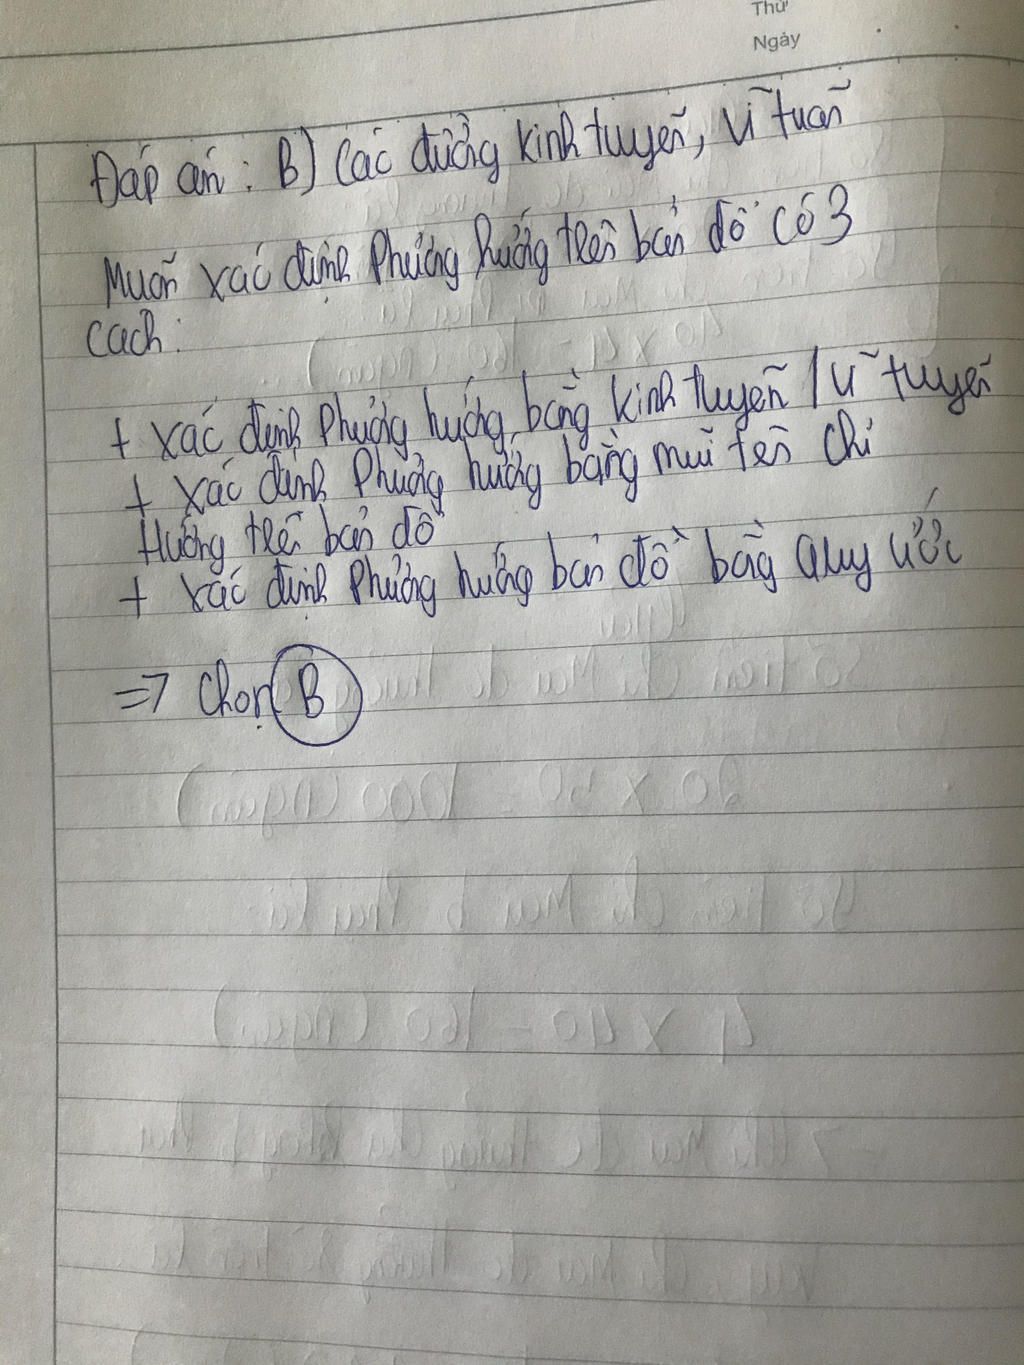 Thứ
Ngày
Đáp án: B) Các đường kinh tuyến, vĩ tuấn
Muốn xác định Phương hướng trên bản đồ có 3
cách:
+ xác định Phương hướng bằng kinh tuyến / vĩ tuyến
+ xác định Phương hướng bằng mũi tên chỉ
Hướng trên bản đồ
+ xác định Phương hướng bản đồ bằng Quy ước
=> Chọn B